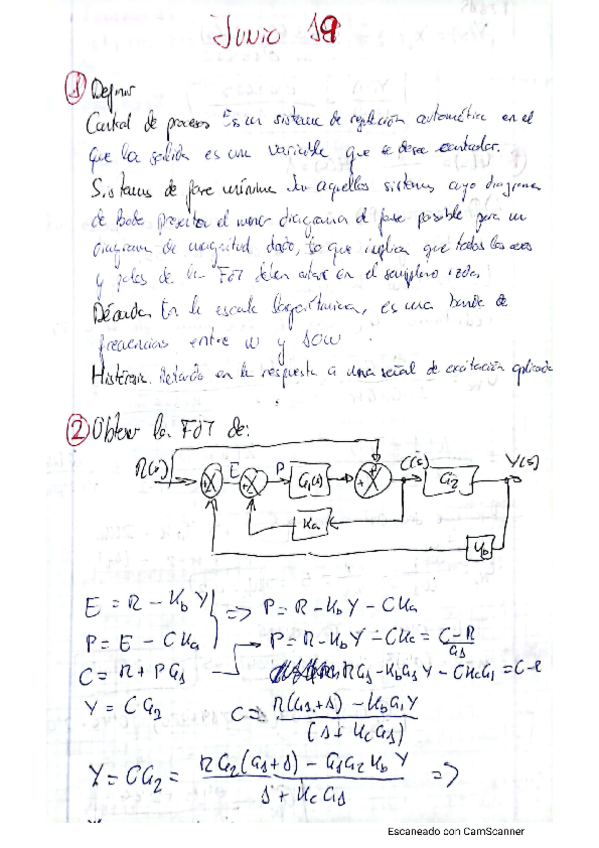 Junio 19
① Definir
Control de procesos Es un sistema de regulación automática en el
que la salida es una variable que se desea controlar.
Sistemas de fase mínima Son aquellos sistemas cuyo diagrama
de bode presenta el menor diagrama de fase posible para un
diagrama de magnitud dado, lo que implica que todos los ceros
y polos de la FdT deben estar en el semiplano izdo.
Década. En la escala logarítmica, es una banda de
frecuencias entre w y 10w.
Histéresis. Retardo en la respuesta a una señal de excitación aplicada
② Obtener la FdT de:
R(s) E P G1(s) C(s) G2 Y(s)
Ka
Kb
E = R - Kb Y => P = R - Kb Y - C Ka
P = E - C Ka P = R - Kb Y - C Kc = C-R / G1
C = R + P G1 RG1 - KbG1 Y - C KcG1 = C-R
Y = C G2 C = R(G1+1) - KbG1Y / (1 + KcG1)
Y = CG2 = RG2(G1+1) - G1G2 Kb Y / 1 + Kc G1 =>
Escaneado con CamScanner